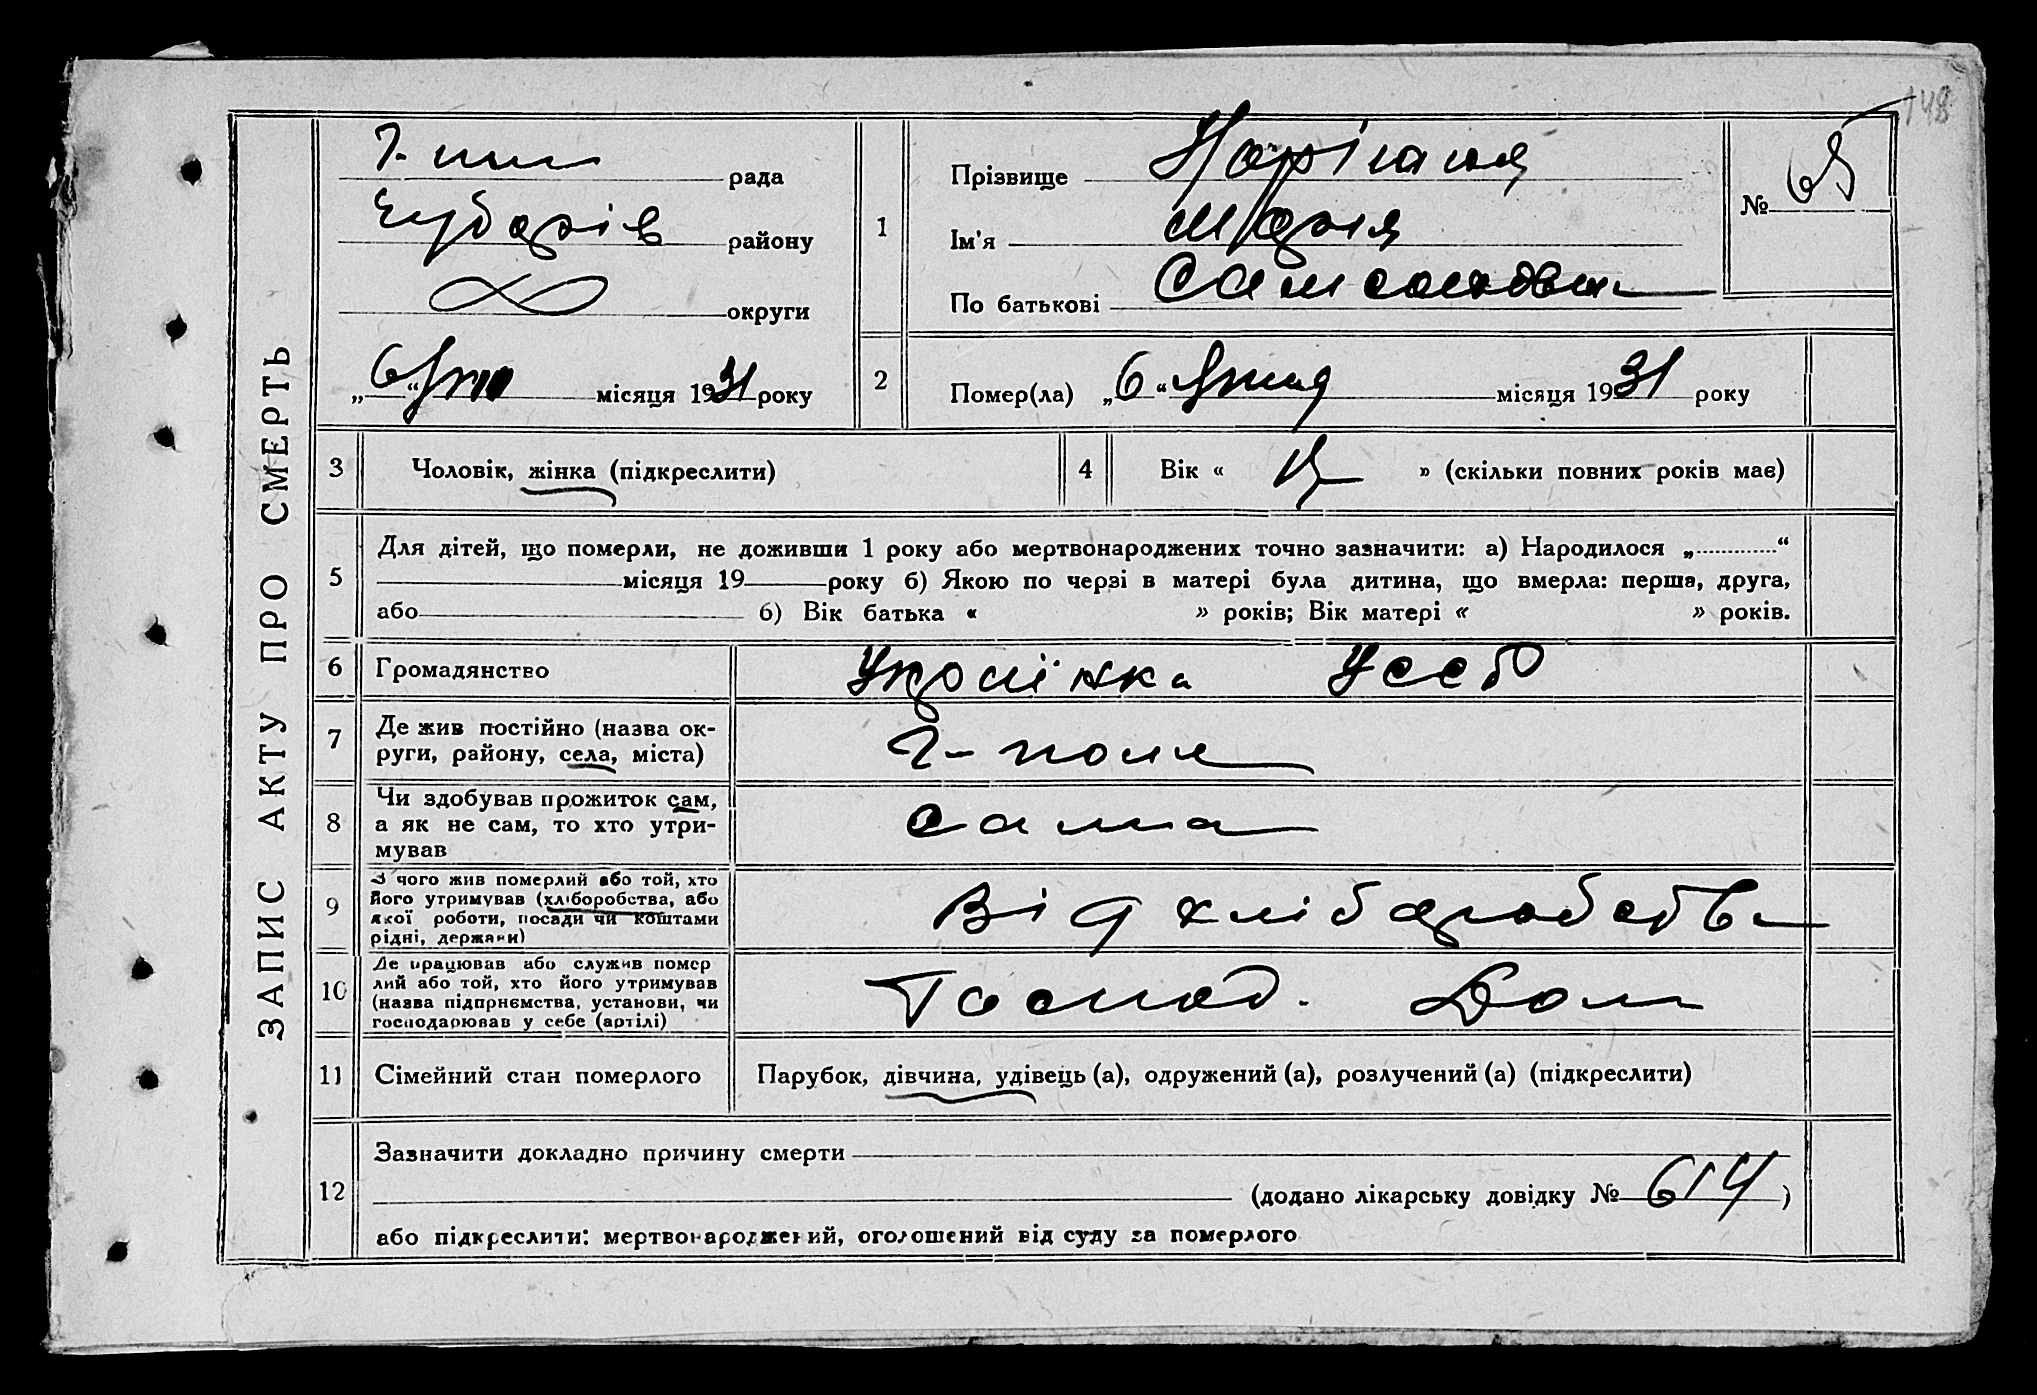 148
ЗАПИС АКТУ ПРО СМЕРТЬ
рада
Чубарів району
округи
„6“ місяця 1931 року
1
Прізвище
Ім'я Марія
По батькові Самсоновна
№ 65
2
Помер(ла) „6“ місяця 1931 року
3
Чоловік, жінка (підкреслити)
4
Вік « » (скільки повних років має)
5
Для дітей, що померли, не доживши 1 року або мертвонароджених точно зазначити: а) Народилося „ “
місяця 19 року б) Якою по черзі в матері була дитина, що вмерла: перша, друга,
або б) Вік батька « » років; Вік матері « » років.
6
Громадянство
Українка УССР
7
Де жив постійно (назва ок-
руги, району, села, міста)
Г-поле
8
Чи здобував прожиток сам,
а як не сам, то хто утри-
мував
сама
9
З чого жив померлий або той, хто
його утримував (хліборобства, або
якої роботи, посади чи коштами
рідні, держави)
Від хліборобства
10
Де працював або служив помер
лий або той, хто його утримував
(назва підприємства, установи, чи
господарював у себе (артілі)
Господ. Дом
11
Сімейний стан померлого
Парубок, дівчина, удівець (а), одружений (а), розлучений (а) (підкреслити)
12
Зазначити докладно причину смерти
(додано лікарську довідку № 614)
або підкреслити: мертвонароджений, оголошений від суду за померлого